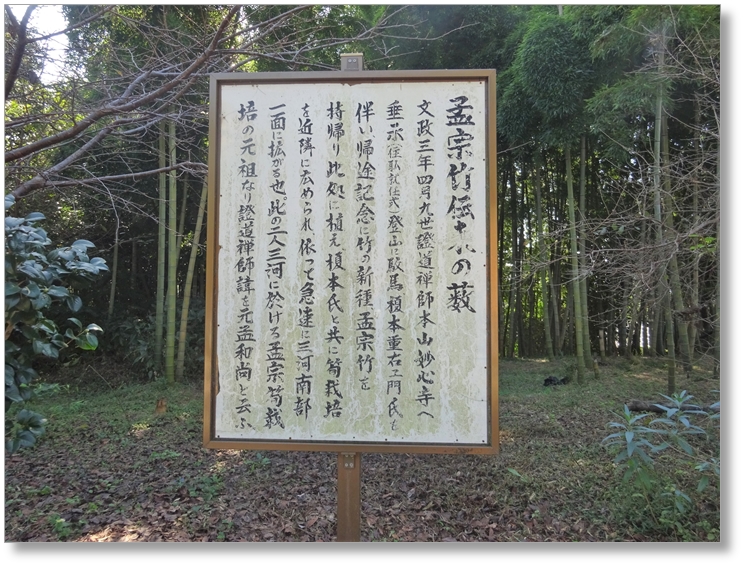 孟宗竹伝来の薮
文政三年四月九世證道禅師本山妙心寺へ
垂示(住職就任式)登山に駿馬榎本重右エ門氏も
伴い帰途記念に竹の新種孟宗竹を
持帰り此処に植え榎本氏と共に筍栽培
を近隣に広められ依って急速に三河南部
一面に拡がる也。此の二人三河に於ける孟宗筍栽
培の元祖なり證道禅師諱を元孟和尚と云ふ